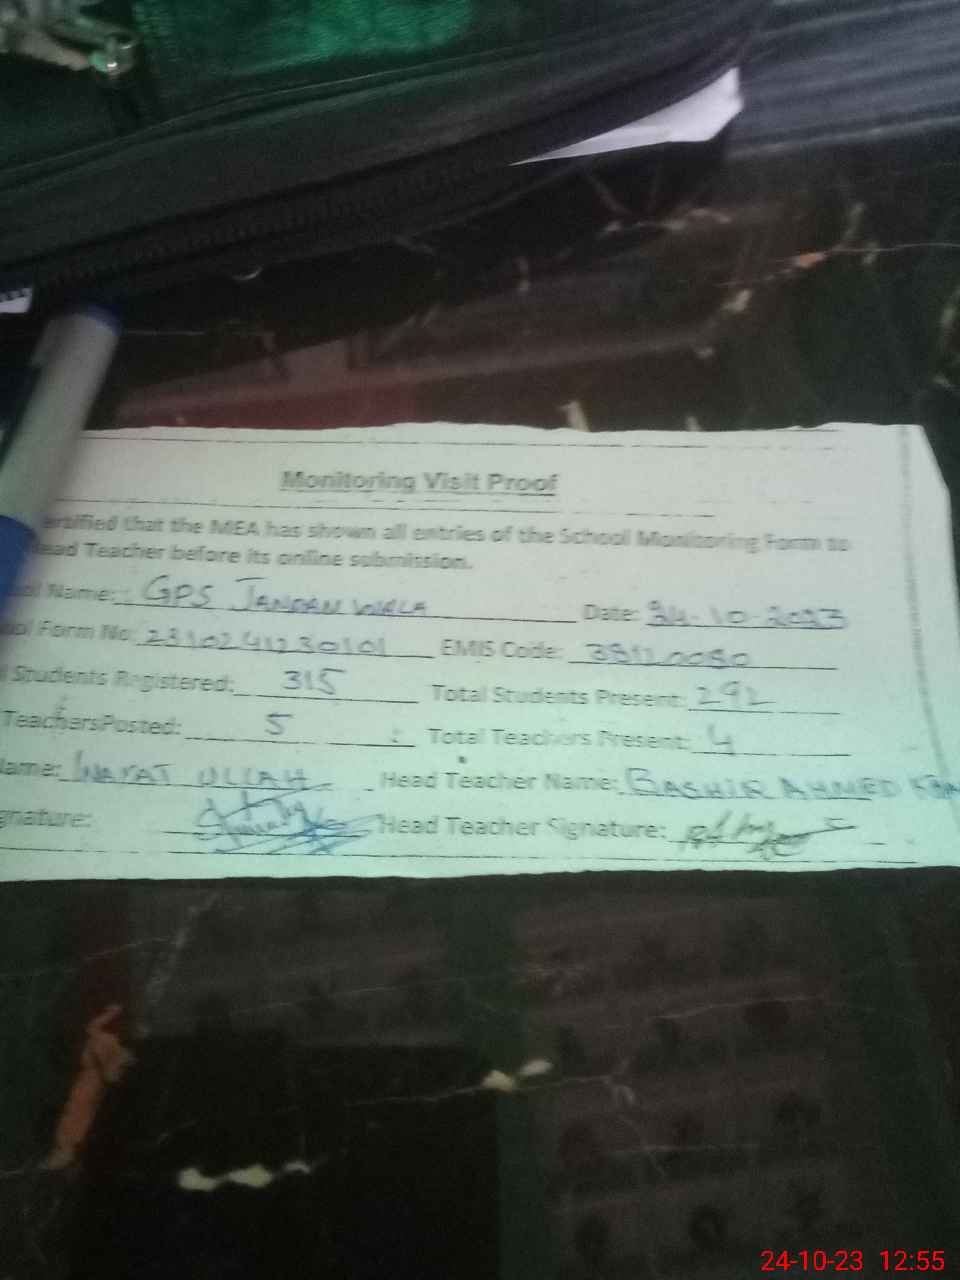 Monitoring Visit Proof
ertified that the MEA has shown all entries of the School Monitoring Form to
Head Teacher before its online submission.
ool Name: GPS JANDANWALA Date: 24-10-2023
ool Form No: 2310241230101 EMIS Code:
l Students Registered: 315 Total Students Present: 292
TeachersPosted: 5 Total Teachers Present: 4
Name: INAYAT ULLAH Head Teacher Name: BASHIR AHMED KHA
gnature: Head Teacher Signature:
24-10-23 12:55